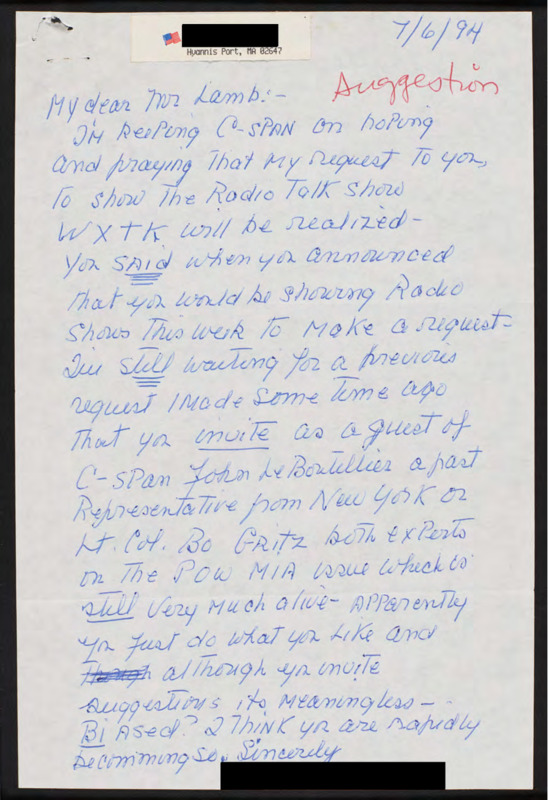 Hyannis Port, MA 02647
7/6/94
Suggestion
My dear Mr Lamb:-
I'm keeping C-SPAN on hoping
and praying that my request to you,
to show the Radio Talk Show
WXTK will be realized-
You said when you announced
that you would be showing Radio
Shows this week to make a request-
I'm still waiting for a previous
request I made some time ago
that you invite as a guest of
C-SPAN John LeBoutillier a past
Representative from New York or
Lt. Col. Bo Gritz both experts
on the POW MIA issue which is
still very much alive- Apparently
you just do what you like and
although you invite
suggestions its meaningless-
BiAsed? I think you are rapidly
becomming so. Sincerely